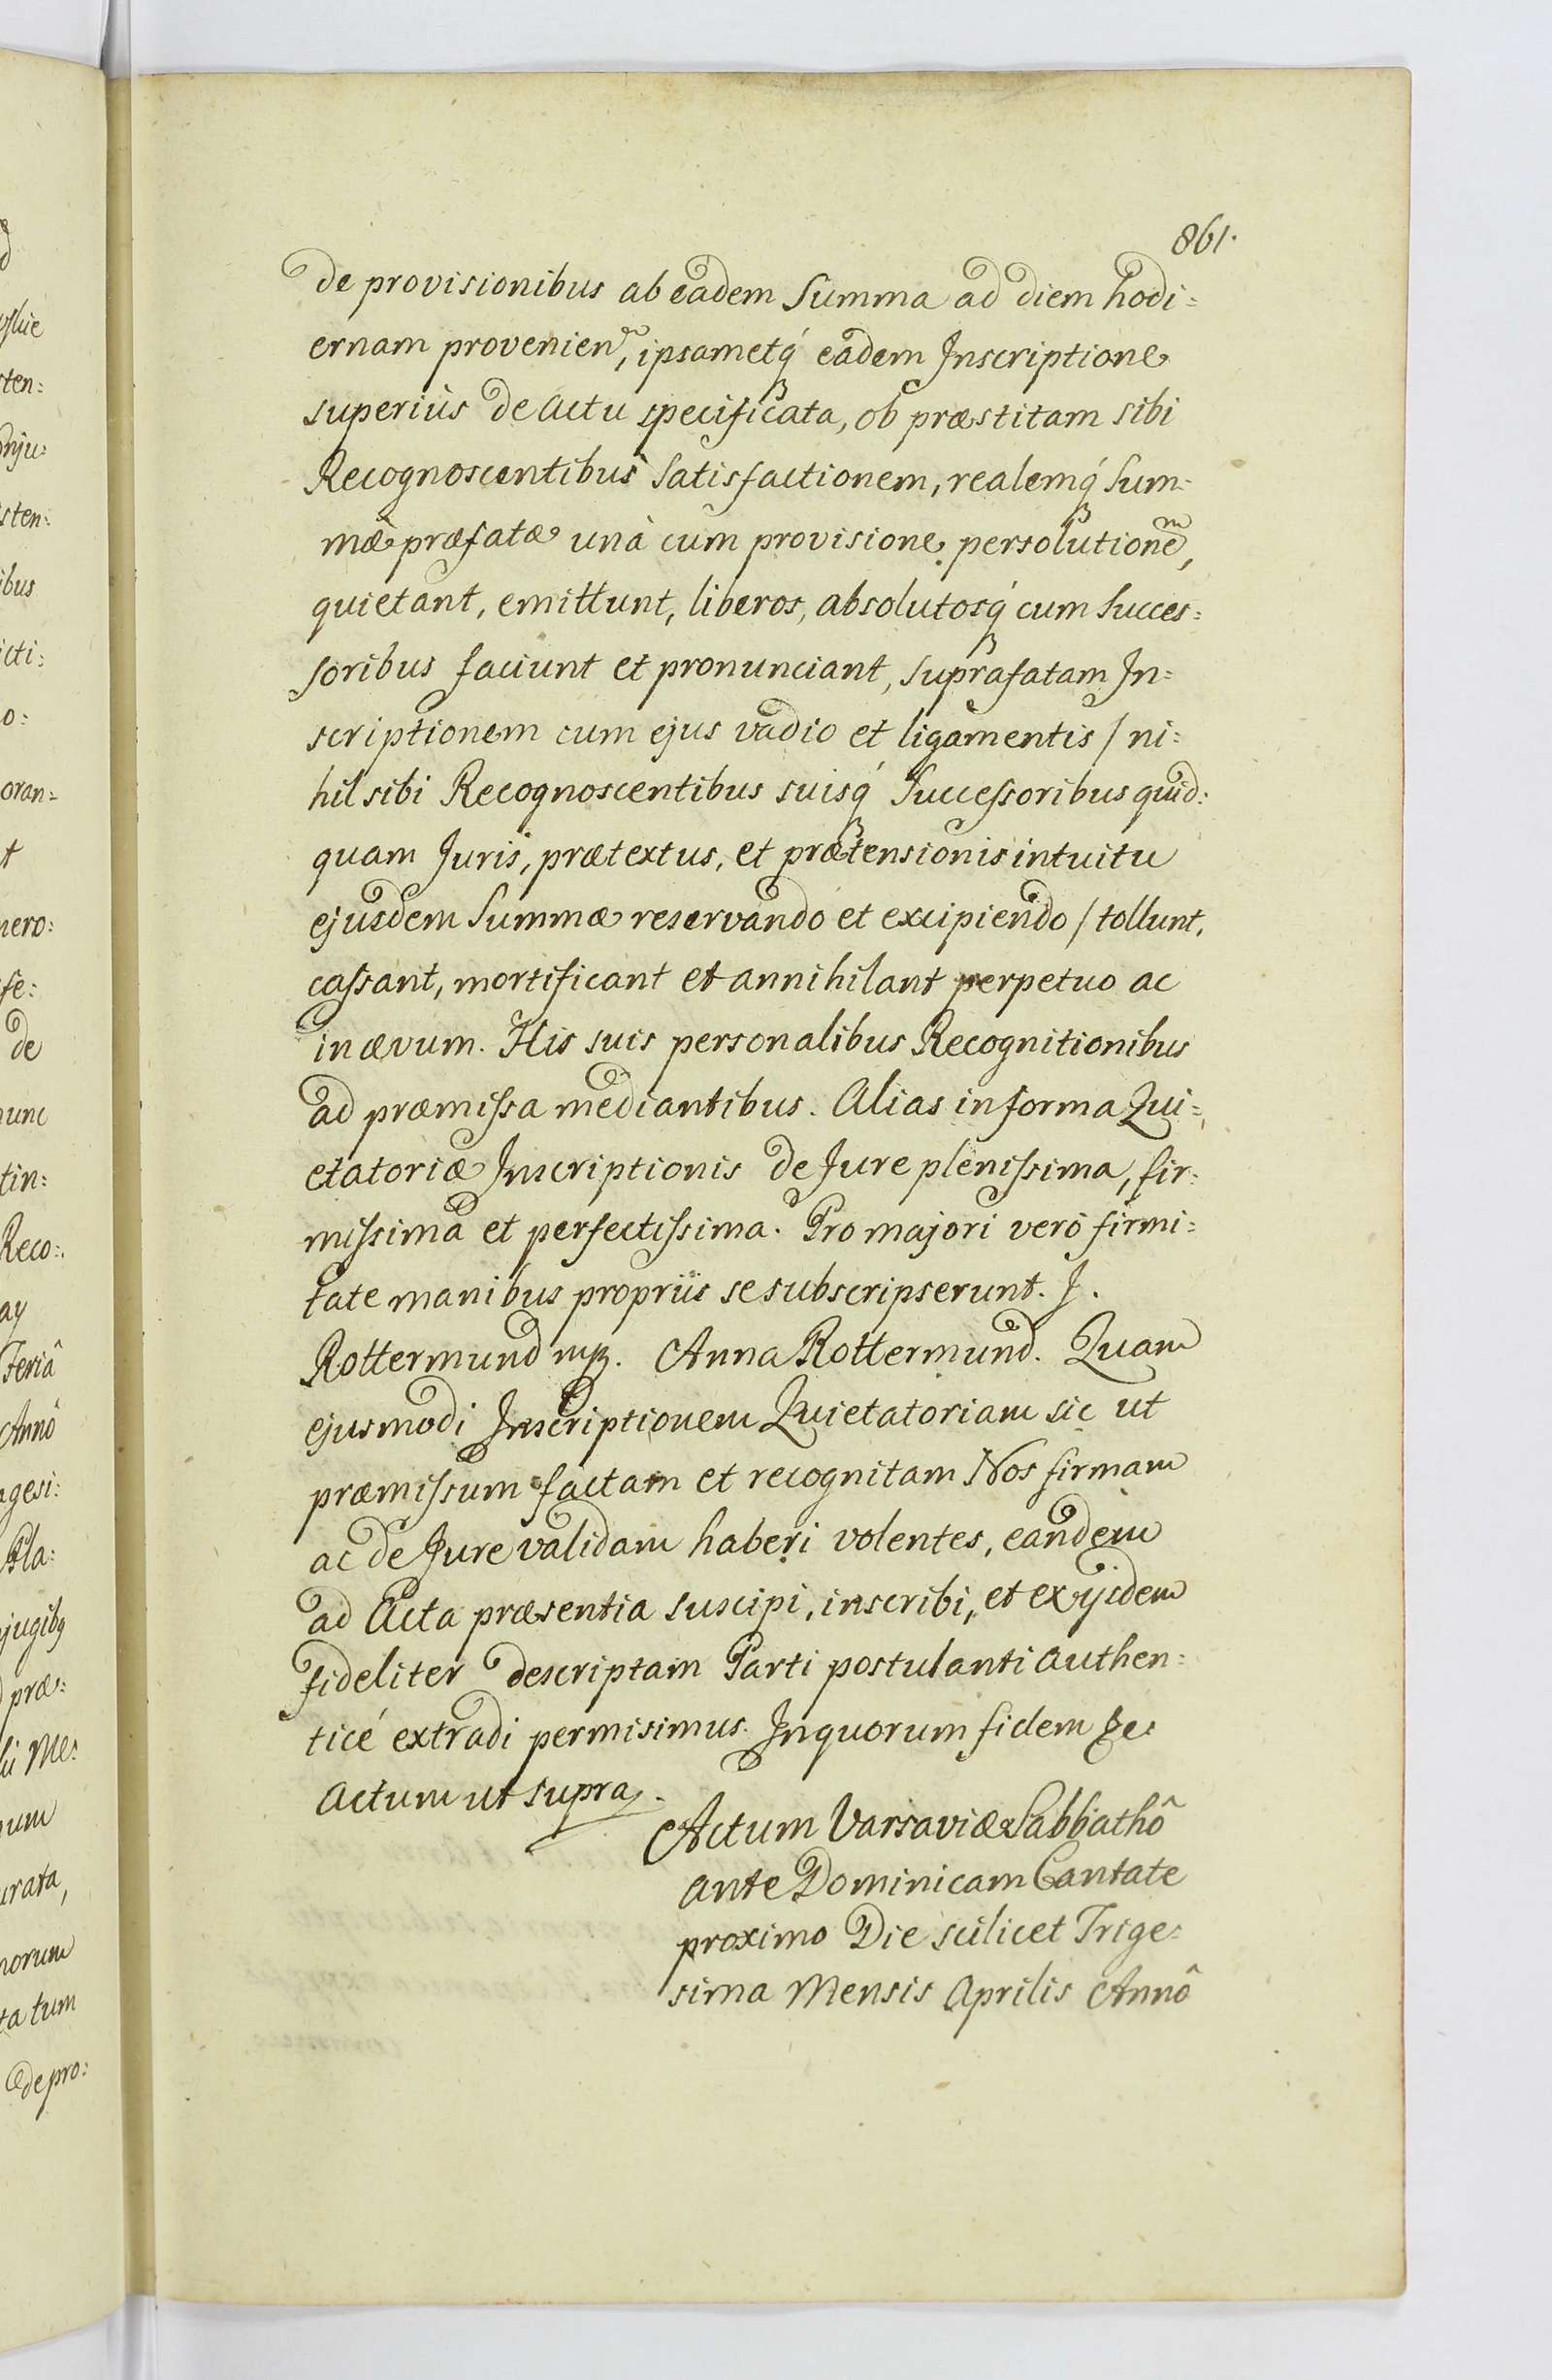 861.
de provisionibus ab eadem Summa ad diem hodi=
ernam provenien, ipsametq́ eadem Inscriptione
superiùs de actu specificata, ob præstitam sibi
Recognoscentibus Satisfactionem, realemq́ Sum=
mæ præfatæ unà cum provisione persolutionem,
quietant, emittunt, liberos, absolutosq́ cum Succes=
soribus faciunt et pronunciant, suprafatam In=
scriptionem cum ejus vadio et ligamentis / ni=
hil sibi Recognoscentibus suisq́ Successoribus quid=
quam Juris, prætextus, et prætensionis intuitu
ejusdem Summæ reservando et excipiendo / tollunt,
cassant, mortificant et annihilant perpetuo ac
in ævum. His suis personalibus Recognitionibus
ad præmissa mediantibus. Alias in forma Qui=
etatoriæ Inscriptionis de Jure plenissima, fir=
missima et perfectissima. Pro majori verò firmi=
tate manibus propriis se subscripserunt. J.
Rottermund mp. Anna Rottermund. Quam
ejusmodi Inscriptionem Quietatoriam sic ut
præmissum factam et recognitam Nos firmam
ac de Jure validam haberi volentes, eandem
ad Acta præsentia suscipi, inscribi, et ex ijsdem
fideliter descriptam Parti postulanti authen=
ticé extradi permisimus. In quorum fidem
Actum ut supra.
Actum Varsaviæ Sabbathô
ante Dominicam Cantate
proximo Die scilicet Trige=
sima Mensis Aprilis Annô
de
unc
tin:
Reco:
Feriâ
Annô
agesi:
præ:
tatum
de pro: